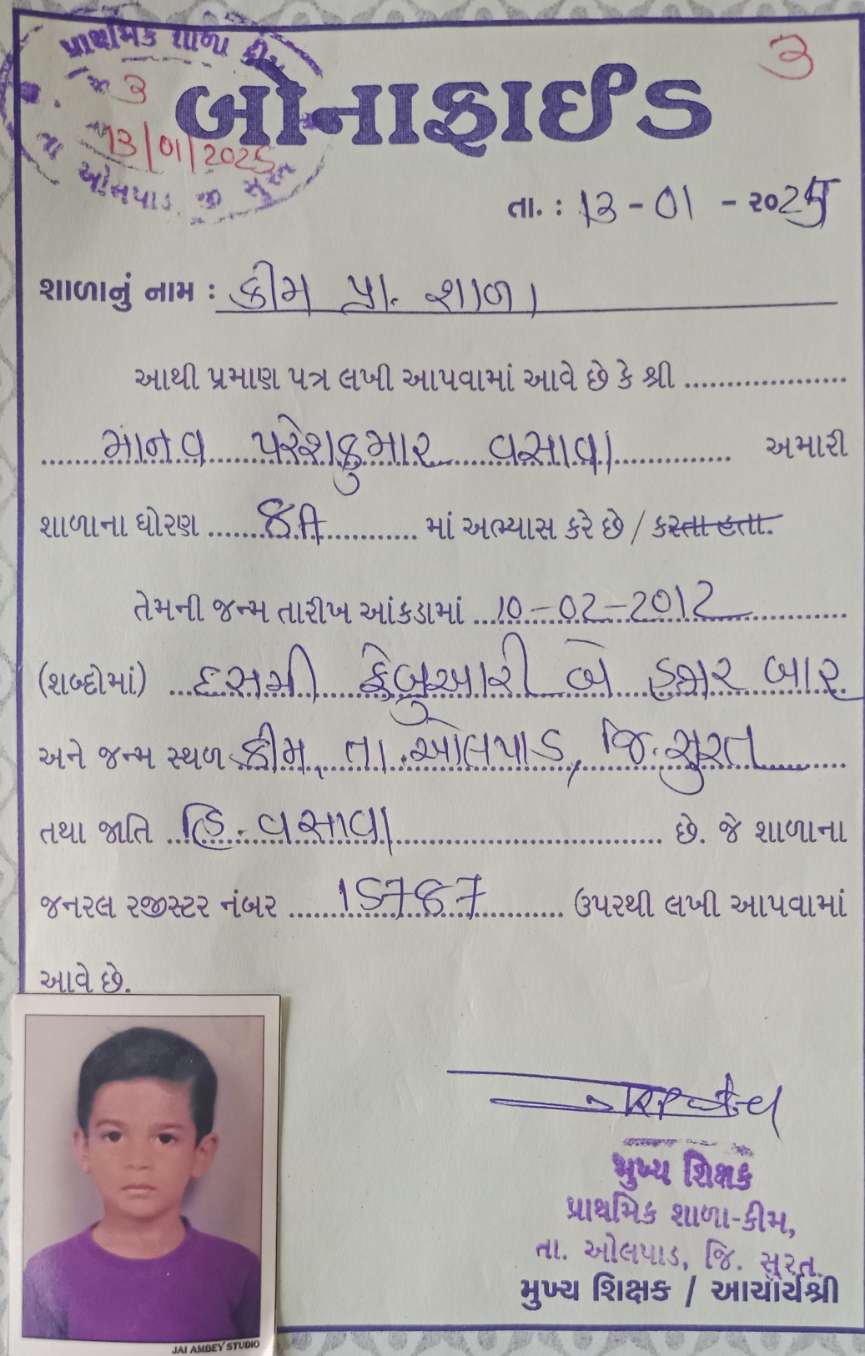 પ્રાથમિક શાળા કીમ
જા 3
તા 13/01/2025
તા ઓલપાડ જી સુરત
૩
બોનાફાઈડ
તા. : 13 - 01 - ૨૦25
શાળાનું નામ : કીમ પ્રા. શાળા
આથી પ્રમાણ પત્ર લખી આપવામાં આવે છે કે શ્રી ....................
......માનવ પરેશકુમાર વસાવા............... અમારી
શાળાના ધોરણ ......8મા........... માં અભ્યાસ કરે છે / કરતા હતા.
તેમની જન્મ તારીખ આંકડામાં ...10-02-2012..............
(શબ્દોમાં) ...દસમી ફેબ્રુઆરી બે હજાર બાર
અને જન્મ સ્થળ કીમ, તા. ઓલપાડ, જિ. સુરત........
તથા જાતિ ...હિ. વસાવા............................... છે. જે શાળાના
જનરલ રજીસ્ટર નંબર .......15787.......... ઉપરથી લખી આપવામાં
આવે છે.
મુખ્ય શિક્ષક
પ્રાથમિક શાળા-કીમ,
તા. ઓલપાડ, જિ. સુરત.
મુખ્ય શિક્ષક / આચાર્યશ્રી
JAI AMBEY STUDIO